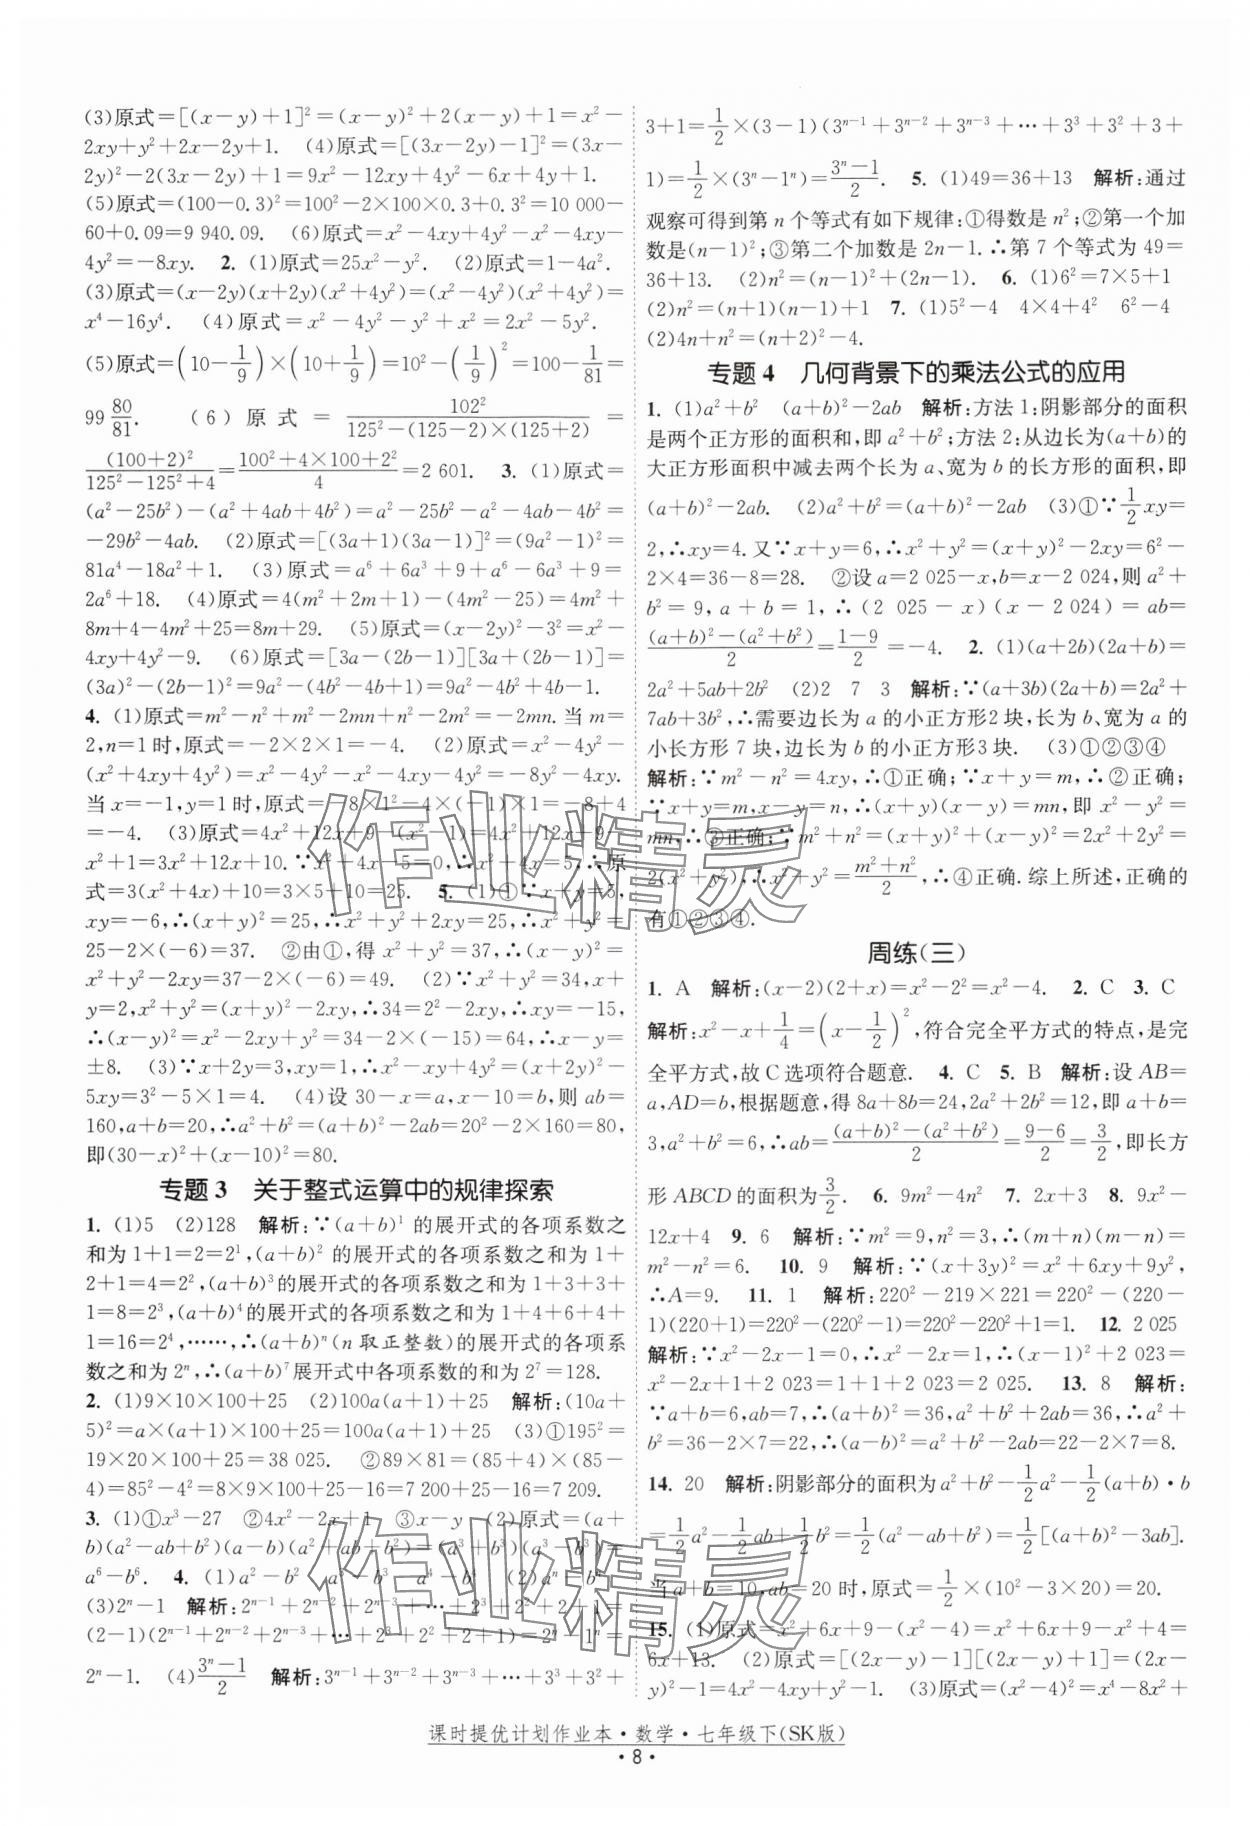 (3)原式=[(x-y)+1]²=(x-y)²+2(x-y)+1=x²-
2xy+y²+2x-2y+1. (4)原式=[(3x-2y)-1]²=(3x-
2y)²-2(3x-2y)+1=9x²-12xy+4y²-6x+4y+1.
(5)原式=(100-0.3)²=100²-2×100×0.3+0.3²=10 000-
60+0.09=9 940.09. (6)原式=x²-4xy+4y²-x²-4xy-
4y²=-8xy. 2. (1)原式=25x²-y². (2)原式=1-4a².
(3)原式=(x-2y)(x+2y)(x²+4y²)=(x²-4y²)(x²+4y²)=
x⁴-16y⁴. (4)原式=x²-4y²-y²+x²=2x²-5y².
(5)原式=(10-1/9)×(10+1/9)=10²-(1/9)²=100-1/81=
99 80/81. (6)原式=102²/(125²-(125-2)×(125+2))=
(100+2)²/(125²-125²+4)=(100²+4×100+2²)/4=2 601. 3. (1)原式=
(a²-25b²)-(a²+4ab+4b²)=a²-25b²-a²-4ab-4b²=
-29b²-4ab. (2)原式=[(3a+1)(3a-1)]²=(9a²-1)²=
81a⁴-18a²+1. (3)原式=a⁶+6a³+9+a⁶-6a³+9=
2a⁶+18. (4)原式=4(m²+2m+1)-(4m²-25)=4m²+
8m+4-4m²+25=8m+29. (5)原式=(x-2y)²-3²=x²-
4xy+4y²-9. (6)原式=[3a-(2b-1)][3a+(2b-1)]=
(3a)²-(2b-1)²=9a²-(4b²-4b+1)=9a²-4b²+4b-1.
4. (1)原式=m²-n²+m²-2mn+n²-2m²=-2mn.当m=
2,n=1时,原式=-2×2×1=-4. (2)原式=x²-4y²-
(x²+4xy+4y²)=x²-4y²-x²-4xy-4y²=-8y²-4xy.
当x=-1,y=1时,原式=-8×1²-4×(-1)×1=-8+4
=-4. (3)原式=4x²+12x+9-(x²-1)=4x²+12x+9-
x²+1=3x²+12x+10.∵x²+4x-5=0,∴x²+4x=5,∴原
式=3(x²+4x)+10=3×5+10=25. 5. (1)①∵x+y=5,
xy=-6,∴(x+y)²=25,∴x²+y²+2xy=25,∴x²+y²=
25-2×(-6)=37. ②由①,得x²+y²=37,∴(x-y)²=
x²+y²-2xy=37-2×(-6)=49. (2)∵x²+y²=34,x+
y=2,x²+y²=(x+y)²-2xy,∴34=2²-2xy,∴xy=-15,
∴(x-y)²=x²-2xy+y²=34-2×(-15)=64,∴x-y=
±8. (3)∵x+2y=3,xy=1,∴x²-xy+4y²=(x+2y)²-
5xy=3²-5×1=4. (4)设30-x=a,x-10=b,则ab=
160,a+b=20,∴a²+b²=(a+b)²-2ab=20²-2×160=80,
即(30-x)²+(x-10)²=80.
专题3 关于整式运算中的规律探索
1. (1)5 (2)128 解析:∵(a+b)¹的展开式的各项系数之
和为1+1=2=2¹,(a+b)²的展开式的各项系数之和为1+
2+1=4=2²,(a+b)³的展开式的各项系数之和为1+3+3+
1=8=2³,(a+b)⁴的展开式的各项系数之和为1+4+6+4+
1=16=2⁴,……,∴(a+b)ⁿ(n取正整数)的展开式的各项系
数之和为2ⁿ,∴(a+b)⁷展开式中各项系数的和为2⁷=128.
2. (1)9×10×100+25 (2)100a(a+1)+25 解析:(10a+
5)²=a×(a+1)×100+25=100a(a+1)+25 (3)①195²=
19×20×100+25=38 025. ②89×81=(85+4)×(85-
4)=85²-4²=8×9×100+25-16=7 200+25-16=7 209.
3. (1)①x³-27 ②4x²-2x+1 ③x-y (2)原式=(a+
b)(a²-ab+b²)(a-b)(a²+ab+b²)=(a³+b³)(a³-b³)=
a⁶-b⁶. 4. (1)a²-b² a³-b³ a⁴-b⁴ (2)aⁿ-bⁿ
(3)2ⁿ-1 解析:2ⁿ⁻¹+2ⁿ⁻²+2ⁿ⁻³+…+2³+2²+2+1=
(2-1)(2ⁿ⁻¹+2ⁿ⁻²+2ⁿ⁻³+…+2³+2²+2+1)=2ⁿ-1ⁿ=
2ⁿ-1. (4)(3ⁿ-1)/2 解析:3ⁿ⁻¹+3ⁿ⁻²+3ⁿ⁻³+…+3³+3²+
3+1=1/2×(3-1)(3ⁿ⁻¹+3ⁿ⁻²+3ⁿ⁻³+…+3³+3²+3+
1)=1/2×(3ⁿ-1ⁿ)=(3ⁿ-1)/2. 5. (1)49=36+13 解析:通过
观察可得到第n个等式有如下规律:①得数是n²;②第一个加
数是(n-1)²;③第二个加数是2n-1.∴第7个等式为49=
36+13. (2)n²=(n-1)²+(2n-1). 6. (1)6²=7×5+1
(2)n²=(n+1)(n-1)+1 7. (1)5²-4 4×4+4² 6²-4
(2)4n+n²=(n+2)²-4.
专题4 几何背景下的乘法公式的应用
1. (1)a²+b² (a+b)²-2ab 解析:方法1:阴影部分的面积
是两个正方形的面积和,即a²+b²;方法2:从边长为(a+b)的
大正方形面积中减去两个长为a、宽为b的长方形的面积,即
(a+b)²-2ab. (2)a²+b²=(a+b)²-2ab (3)①∵1/2xy=
2,∴xy=4.又∵x+y=6,∴x²+y²=(x+y)²-2xy=6²-
2×4=36-8=28. ②设a=2 025-x,b=x-2 024,则a²+
b²=9,a+b=1,∴(2 025-x)(x-2 024)=ab=
((a+b)²-(a²+b²))/2=(1-9)/2=-4. 2. (1)(a+2b)(2a+b)=
2a²+5ab+2b² (2)2 7 3 解析:∵(a+3b)(2a+b)=2a²+
7ab+3b²,∴需要边长为a的小正方形2块,长为b、宽为a的
小长方形7块,边长为b的小正方形3块. (3)①②③④
解析:∵m²-n²=4xy,∴①正确;∵x+y=m,∴②正确;
∵x+y=m,x-y=n,∴(x+y)(x-y)=mn,即x²-y²=
mn,∴③正确;∵m²+n²=(x+y)²+(x-y)²=2x²+2y²=
2(x²+y²),∴x²+y²=(m²+n²)/2,∴④正确.综上所述,正确的
有①②③④.
周练(三)
1. A 解析:(x-2)(2+x)=x²-2²=x²-4. 2. C 3. C
解析:x²-x+1/4=(x-1/2)²,符合完全平方式的特点,是完
全平方式,故C选项符合题意. 4. C 5. B 解析:设AB=
a,AD=b,根据题意,得8a+8b=24,2a²+2b²=12,即a+b=
3,a²+b²=6,∴ab=((a+b)²-(a²+b²))/2=(9-6)/2=3/2,即长方
形ABCD的面积为3/2. 6. 9m²-4n² 7. 2x+3 8. 9x²-
12x+4 9. 6 解析:∵m²=9,n²=3,∴(m+n)(m-n)=
m²-n²=6. 10. 9 解析:∵(x+3y)²=x²+6xy+9y²,
∴A=9. 11. 1 解析:220²-219×221=220²-(220-
1)(220+1)=220²-(220²-1)=220²-220²+1=1. 12. 2 025
解析:∵x²-2x-1=0,∴x²-2x=1,∴(x-1)²+2 023=
x²-2x+1+2 023=1+1+2 023=2 025. 13. 8 解析:
∵a+b=6,ab=7,∴(a+b)²=36,a²+b²+2ab=36,∴a²+
b²=36-2×7=22,∴(a-b)²=a²+b²-2ab=22-2×7=8.
14. 20 解析:阴影部分的面积为a²+b²-1/2a²-1/2(a+b)·b
=1/2a²-1/2ab+1/2b²=1/2(a²-ab+b²)=1/2[(a+b)²-3ab].
当a+b=10,ab=20时,原式=1/2×(10²-3×20)=20.
15. (1)原式=x²+6x+9-(x²-4)=x²+6x+9-x²+4=
6x+13. (2)原式=[(2x-y)-1][(2x-y)+1]=(2x-
y)²-1=4x²-4xy+y²-1. (3)原式=(x²-4)²=x⁴-8x²+
课时提优计划作业本·数学·七年级下(SK版)
·8·
作业精灵
作业精灵